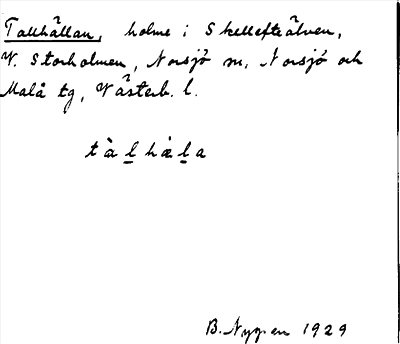 Tallhällan, holme i Skellefteälven,
V. Storholmen, Norsjö sn, Norsjö och
Malå tg, Västerb. l.
tàl̲hæl̲a
B. Nygren 1929